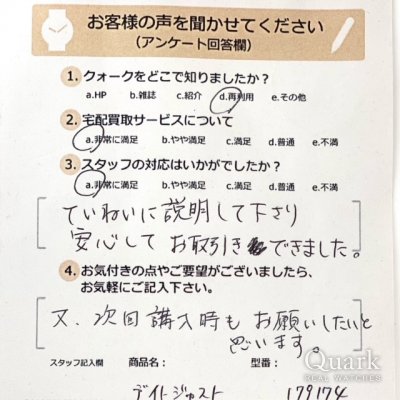 お客様の声を聞かせてください
(アンケート回答欄)
1. クォークをどこで知りましたか？
a.HP b.雑誌 c.紹介 d.再利用 e.その他
2. 宅配買取サービスについて
a.非常に満足 b.やや満足 c.満足 d.普通 e.不満
3. スタッフの対応はいかがでしたか？
a.非常に満足 b.やや満足 c.満足 d.普通 e.不満
ていねいに説明して下さり
安心してお取引きできました。
4. お気付きの点やご要望がございましたら、
お気軽にご記入下さい。
又、次回購入時もお願いしたいと
思います。
Quark
REAL WATCHES
スタッフ記入欄 商品名： 型番：
デイトジャスト 179174